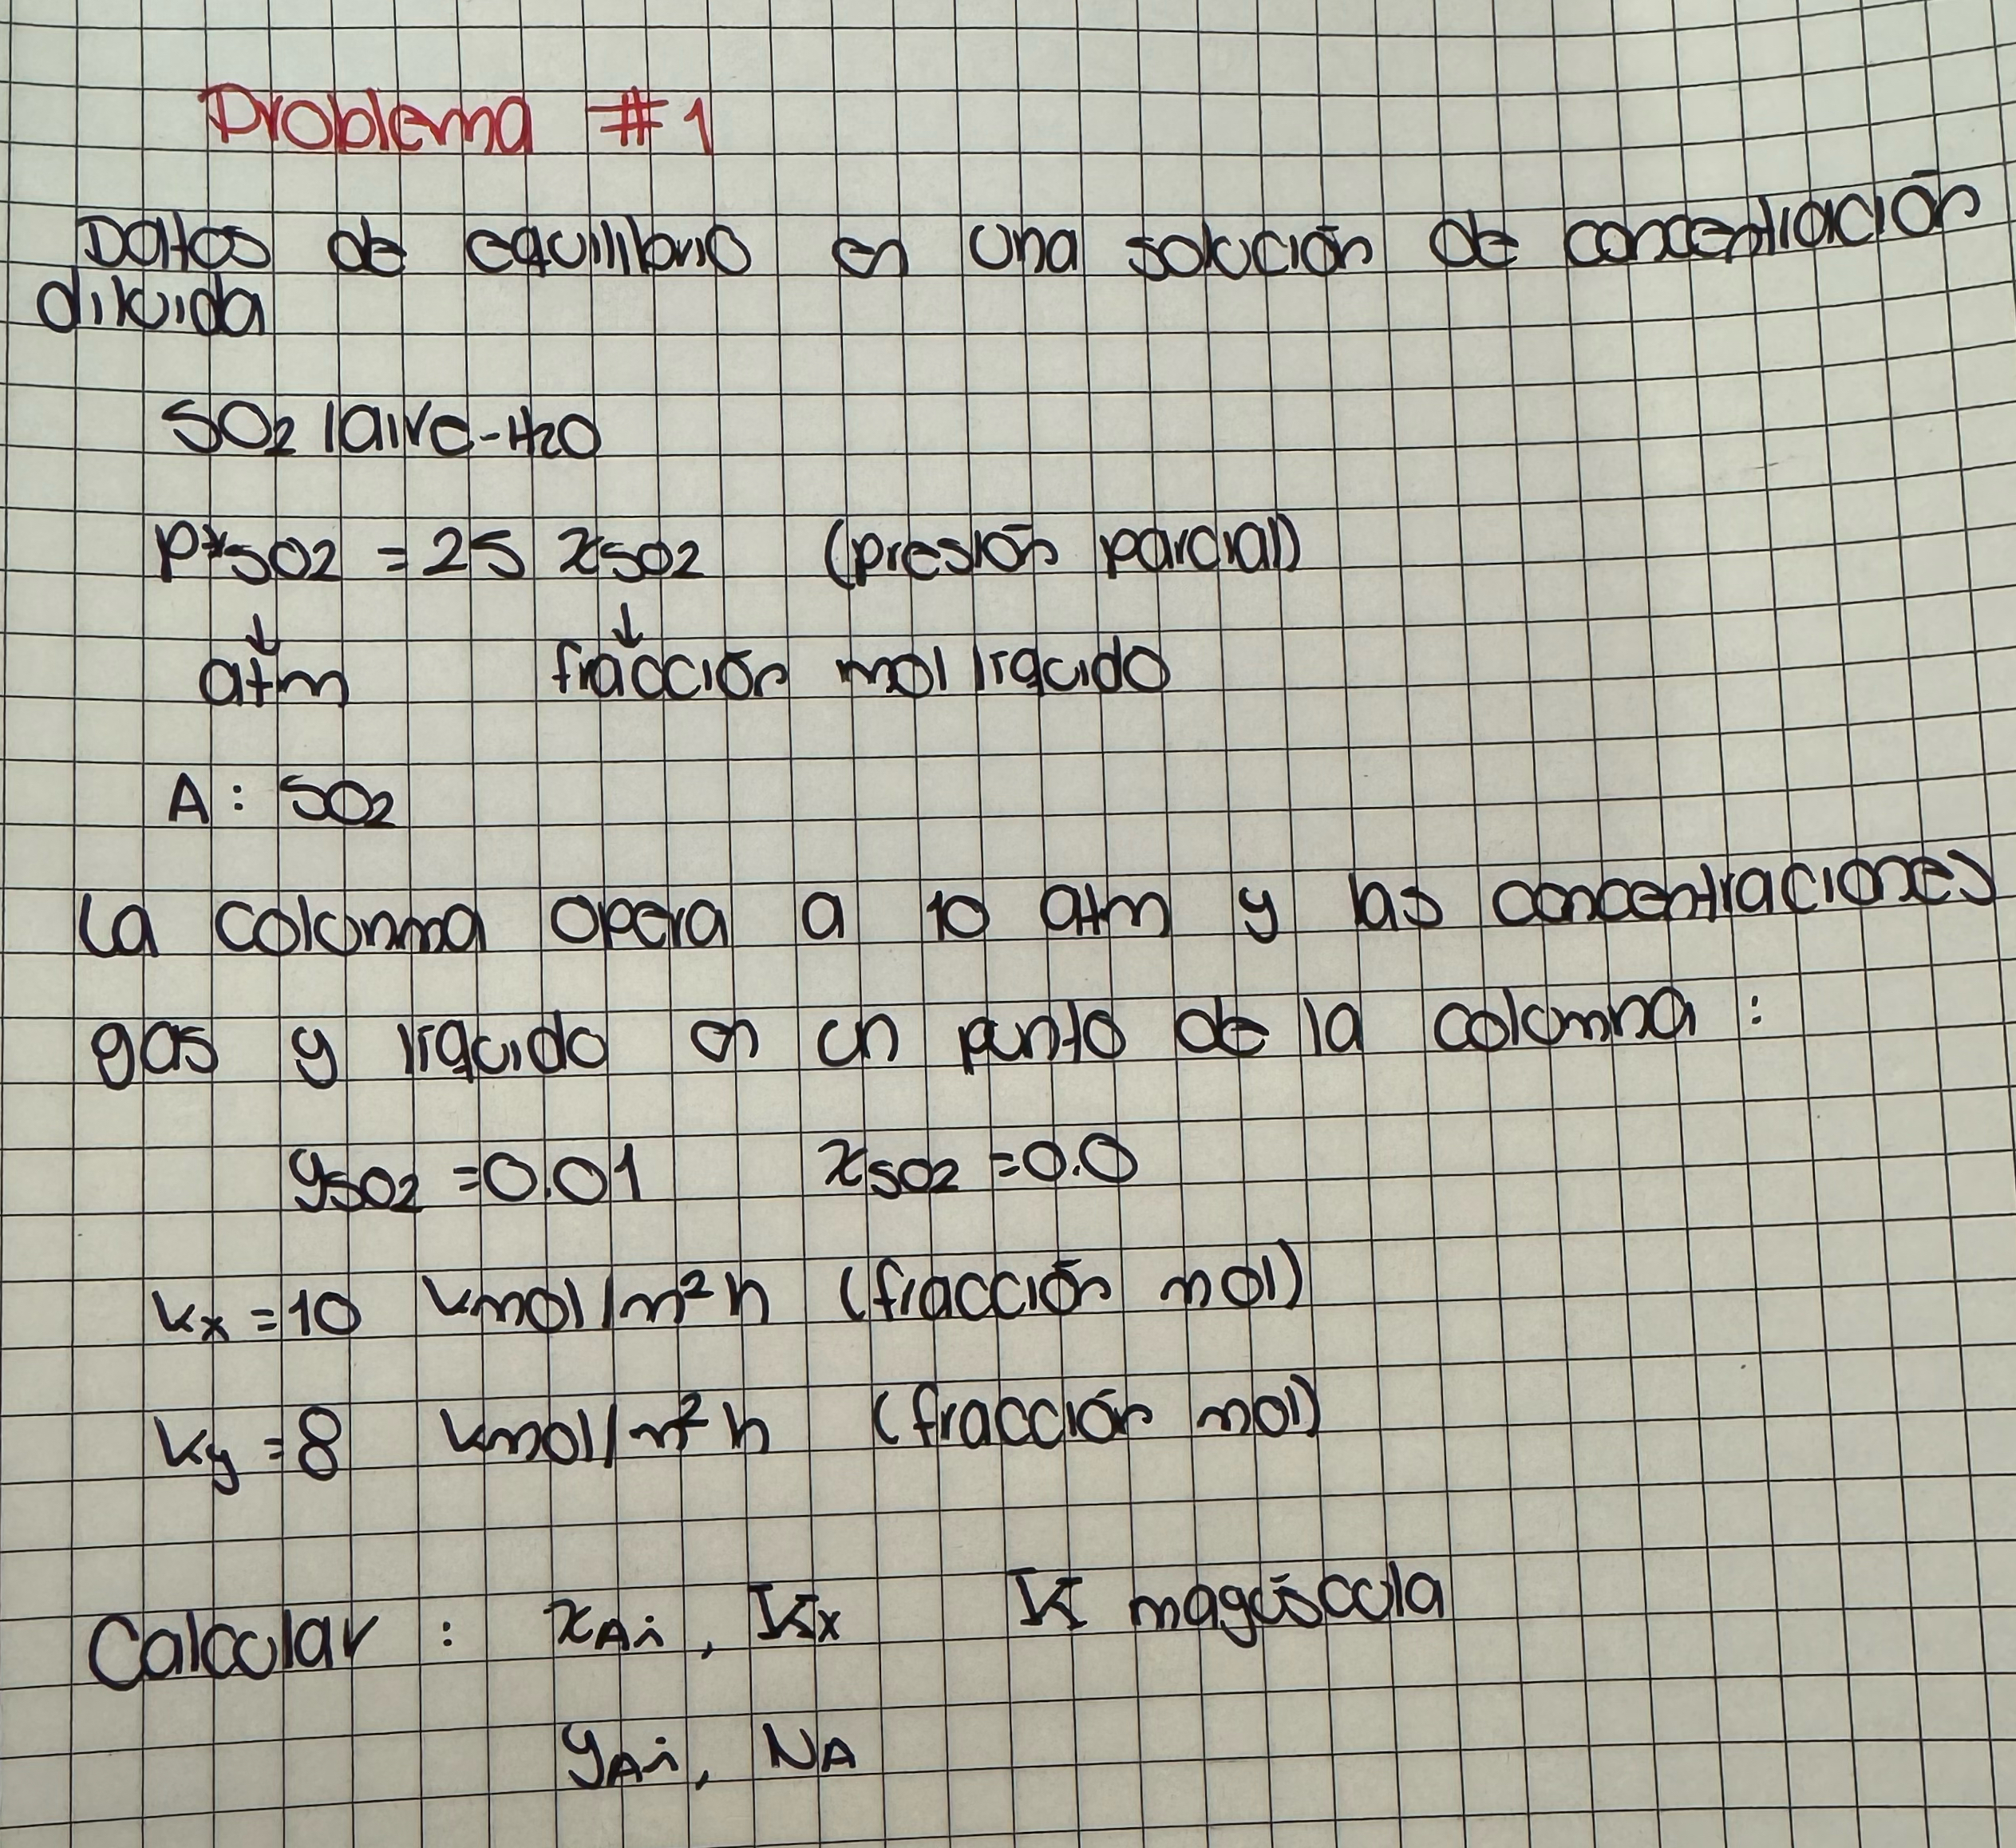 Problema #1
Datos de equilibrio en una solución de concentración
diluida
SO2 |aire-H2O
P*SO2 = 25 xSO2 (presión parcial)
↓ ↓
atm fracción mol líquido
A: SO2
La columna opera a 10 atm y las concentraciones
gas y líquido en un punto de la columna:
ySO2 = 0.01 xSO2 = 0.0
kx = 10 kmol/m²h (fracción mol)
ky = 8 kmol/m²h (fracción mol)
Calcular: xAi, Kx K mayúscula
yAi, NA